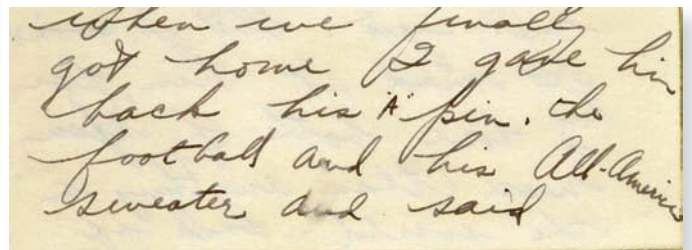 when we finally
got home I gave him
back his "A" pin, the
football and his All-America
sweater and said